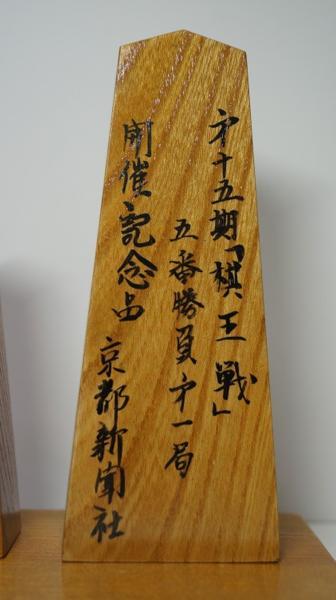 才十五期「棋王戦」
五番勝負才一局
開催記念品
京都新聞社